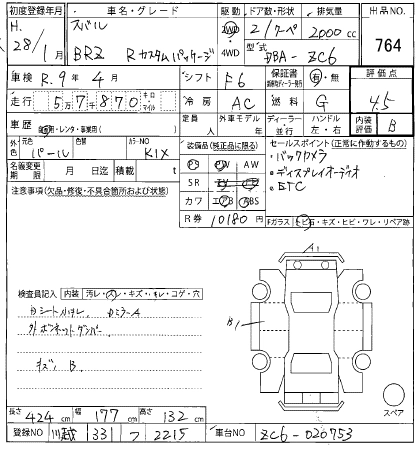 初度登録年月 車名・グレード 駆動 ドア数・形状 排気量 出品NO.
H. 28/1月 スバル BRZ Rカスタムパッケージ 2WD 4WD 2/クーペ 2000cc 764
型式 DBA-ZC6
車検 R.9年4月 シフト F6 保証書 有・無 評価点
走行 57870 キロ・マイル 冷房 AC 燃料 G 4.5
車歴 自家用・レンタ・事業用( ) 定員 人 外車モデル 年 ディーラー・並行 ハンドル 左・右 内装評価 B
外色 元色 パール 色替 カラーNO K1X
名義変更期限 月 日迄 積載 t
装備品(純正品に限る) セールスポイント(正常に作動するもの)
PS PW AW ・バックカメラ
SR TV ナビ ・ディスプレイオーディオ
カワ エアB ABS ・ETC
R券 10180円 Fガラス ヒビ石・キズ・ヒビ・ワレ・リペア跡
注意事項(欠品・修復・不具合箇所および状態)
A1
B1
検査員記入 内装 汚レ・スレ・キズ・キレ・コゲ・穴
DミラーA
外ボンネットダンパー
キズ B
スペア
長さ 424cm 幅 177cm 高さ 132cm
登録NO 川越 331 フ 2215 車台NO ZC6-020753